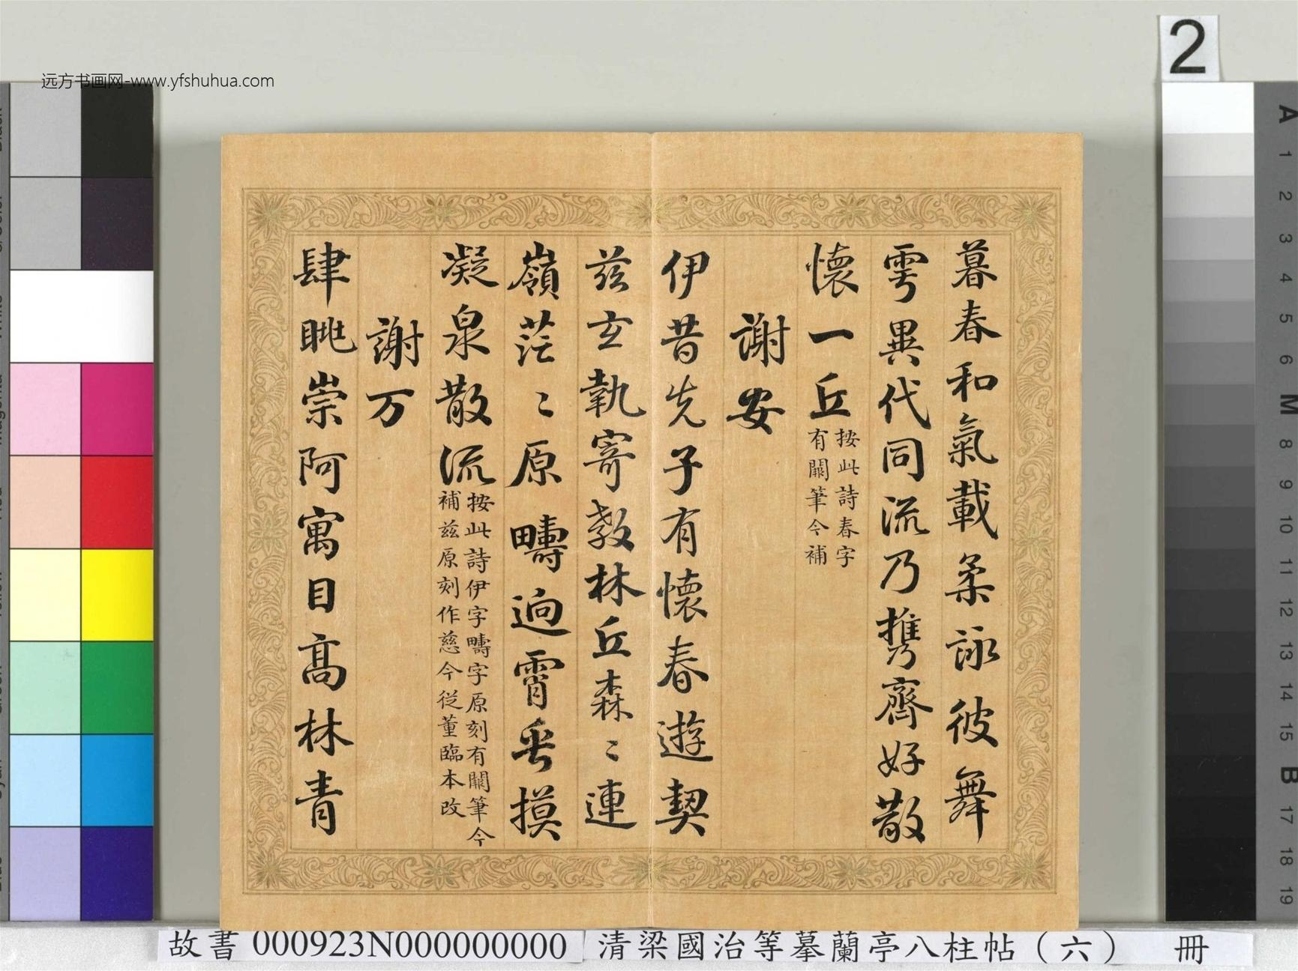 远方书画网-www.yfshuhua.com
2
暮春和氣載柔詠彼舞
雩異代同流乃携齊好散
懷一丘
按此詩春字
有闕筆今補
謝安
伊昔先子有懷春遊契
兹玄執寄敖林丘森〻連
嶺茫〻原疇逈霄垂
凝泉散流
按此詩伊字疇字原刻有闕筆今
補兹原刻作慈今從董臨本改
謝万
肆眺崇阿寓目高林青
A
1
2
3
4
5
6
M
8
9
10
11
12
13
14
15
B
17
18
19
故書 000923N000000000 清梁國治等摹蘭亭八柱帖（六） 冊